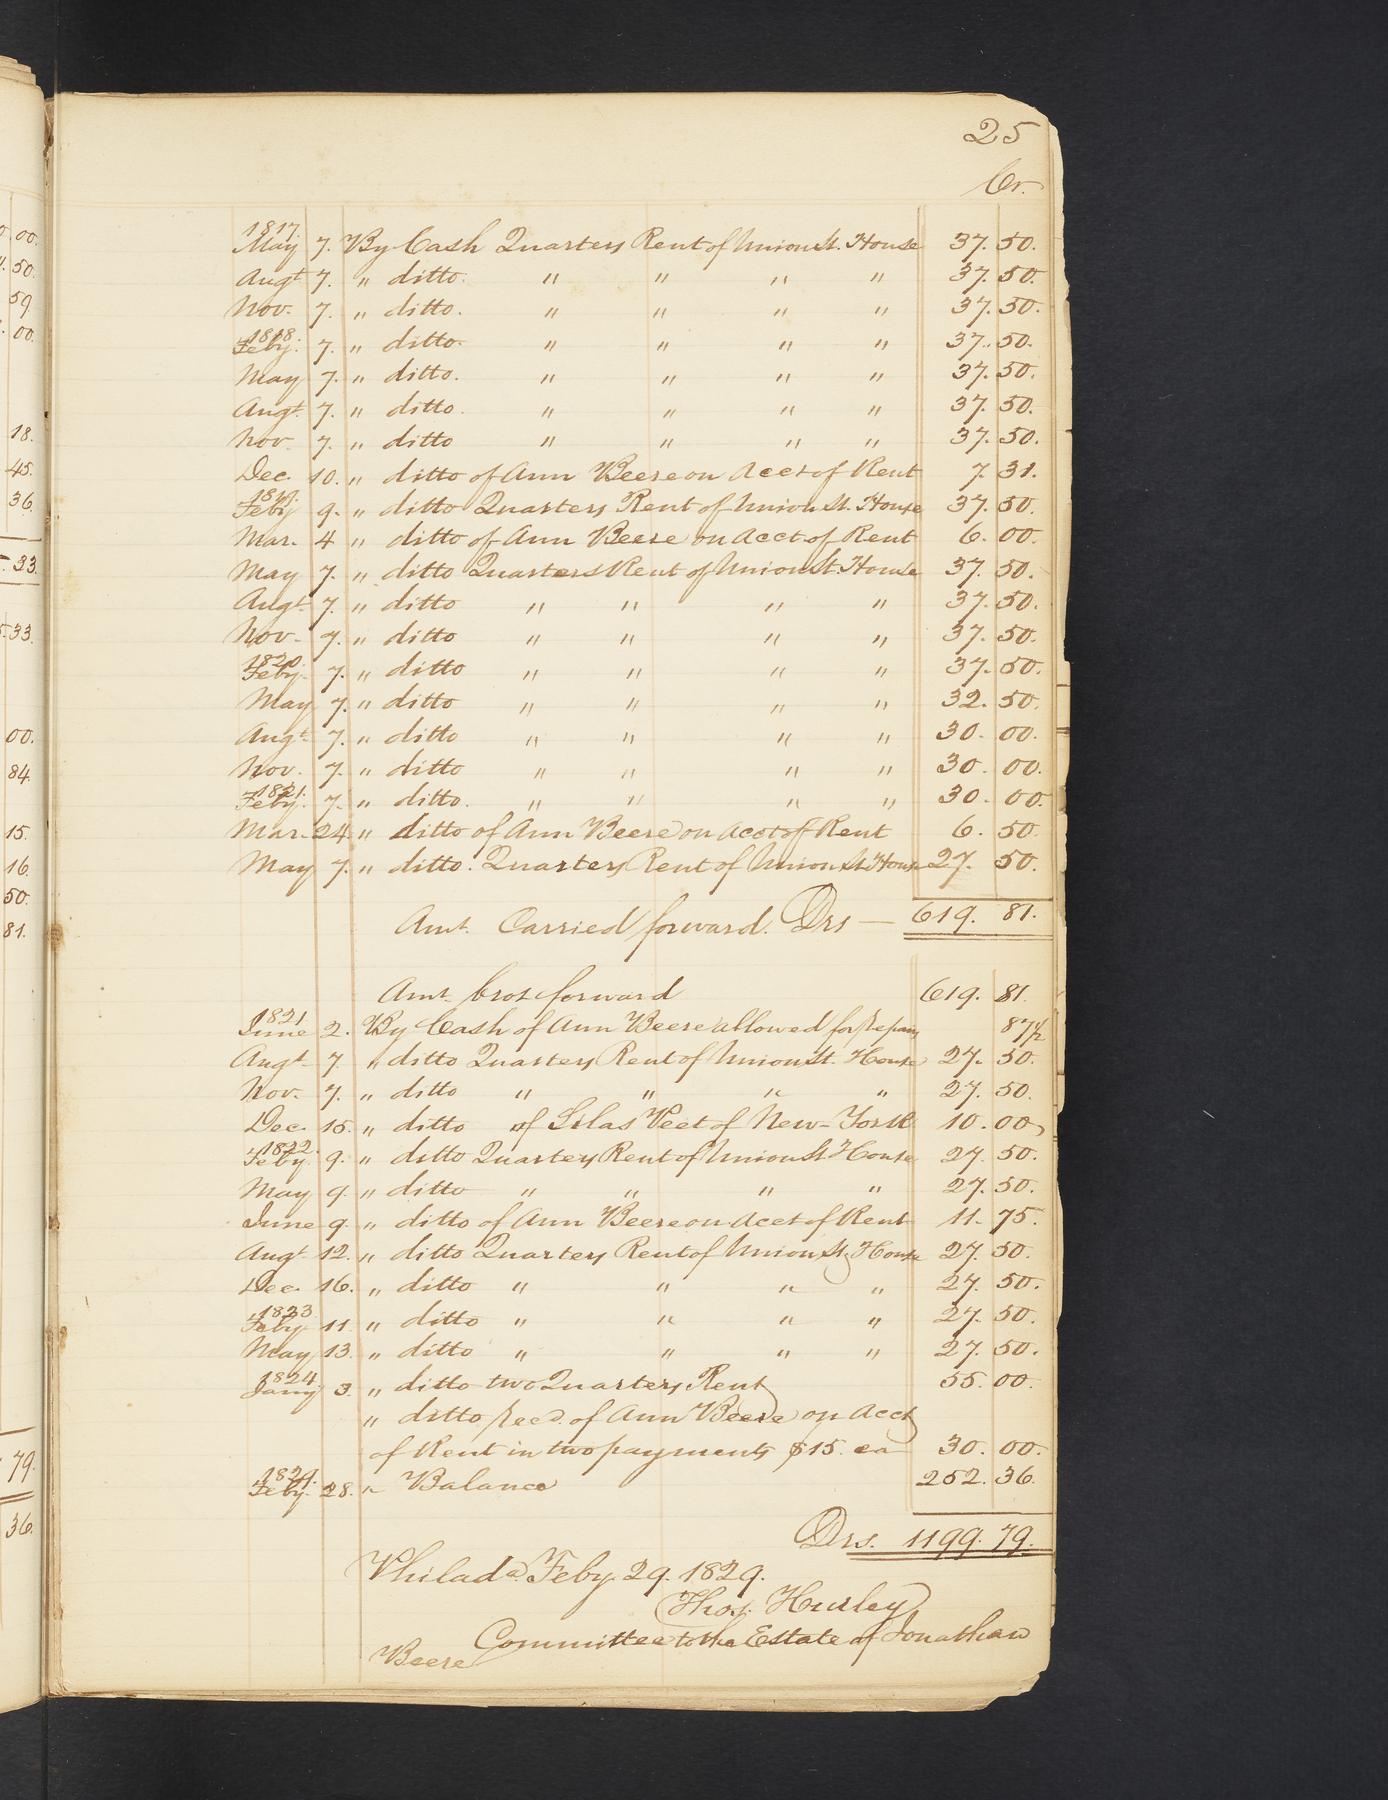 25
Cr.
1817.
May 7. By Cash Quarters Rent of Union St. House 37. 50.
Augt 7. " ditto. " " " " 37. 50.
Nov. 7. " ditto. " " " " 37. 50.
1818.
Feby. 7. " ditto. " " " " 37. 50.
May 7. " ditto. " " " " 37. 50.
Augt. 7. " ditto. " " " " 37. 50.
Nov. 7. " ditto " " " " 37. 50.
Dec. 10. " ditto of Ann Beere on Acct of Rent 7. 31.
1819.
Feby 9. " ditto Quarters Rent of Union St. House 37. 50.
Mar. 4 " ditto of Ann Beere on Acct of Rent 6. 00.
May 7. " ditto Quarters Rent of Union St. House 37. 50.
Augt. 7. " ditto " " " " 37. 50.
Nov. 7. " ditto " " " " 37. 50.
1820.
Feby. 7. " ditto " " " " 37. 50.
May 7. " ditto " " " " 32. 50.
Augt. 7. " ditto " " " " 30. 00.
Nov. 7. " ditto " " " " 30. 00.
1821.
Feby. 7. " ditto. " " " " 30. 00.
Mar. 24. " ditto of Ann Beere on Acct of Rent 6. 50.
May 7. " ditto. Quarters Rent of Union St. House 27. 50.
Amt. Carried forward. Drs — 619. 81.
Amt. brot forward 619. 81.
1821
June 2. By Cash of Ann Beere allowed for repairs 87 1/2
Augt 7. " ditto Quarters Rent of Union St. House 27. 50.
Nov. 7. " ditto " " " " 27. 50.
Dec. 15. " ditto of Silas Veet of New-York 10. 00
1822.
Feby. 9. " ditto Quarters Rent of Union St House 27. 50.
May 9. " ditto " " " " 27. 50.
June 9. " ditto of Ann Beere on Acct of Rent 11. 75.
Augt 12. " ditto Quarters Rent of Union St. House 27. 50.
Dec. 16. " ditto " " " " 27. 50.
1823
Feby 11. " ditto " " " " 27. 50.
May 13. " ditto " " " " 27. 50.
1824
Jany 3. " ditto two Quarters Rent 55. 00.
" ditto recd. of Ann Beere on Acct
of Rent in two payments $15. ea 30. 00.
1829.
Feby. 28. " Balance 252. 36.
Drs. 1199. 79.
Philada. Feby. 29. 1829.
Thos. Hurley
Committee to the Estate of Jonathan
Beere
00.
50.
59.
00.
18.
45.
36.
33.
33.
00.
84.
15.
16.
50.
81.
79.
36.